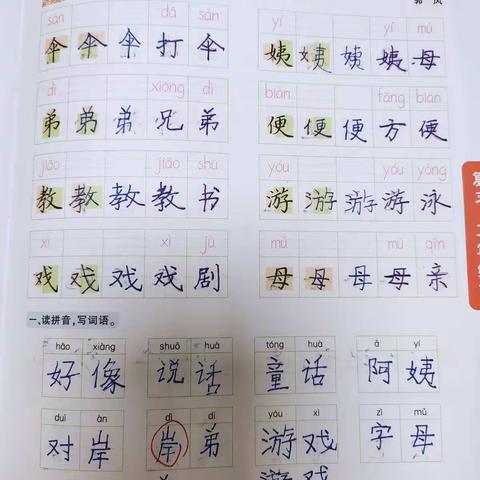 郭 风
sǎn dǎ sǎn yí yí mǔ
伞 伞 伞 打 伞 姨 姨 姨 姨 母
dì xiōng dì biàn fāng biàn
弟 弟 弟 兄 弟 便 便 便 方 便
jiāo jiāo shū yóu yóu yǒng
教 教 教 教 书 游 游 游 游 泳
xì xì jù mǔ mǔ qīn
戏 戏 戏 戏 剧 母 母 母 母 亲
一、读拼音,写词语。
hǎo xiàng shuō huà tóng huà ā yí
好 像 说 话 童 话 阿 姨
duì àn dì di yóu xì zì mǔ
对 岸 岸 弟 游 戏 字 母
游 戏